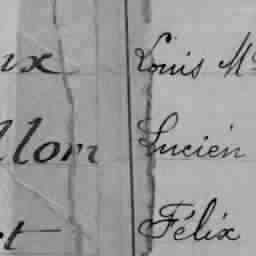 ux Louis M
llon Lucien
et Félix